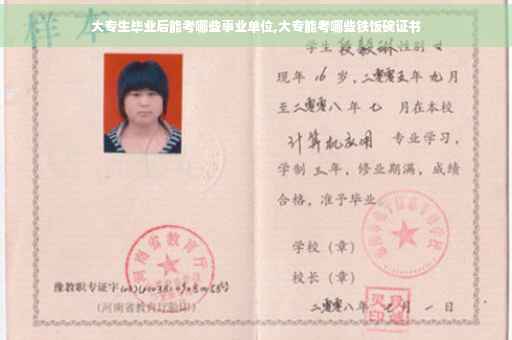 大专生毕业后能考哪些事业单位,大专能考哪些铁饭碗证书
样本
学生段毅琳性别女
现年16岁,二零零五年九月
至二零零八年七 月在本校
计算机应用 专业学习,
学制三年,修业期满,成绩
合格,准予毕业
学校(章)
校长(章)
二零零八年七月一日
河南省教育厅
豫教职专证字
(河南省教育厅验印)